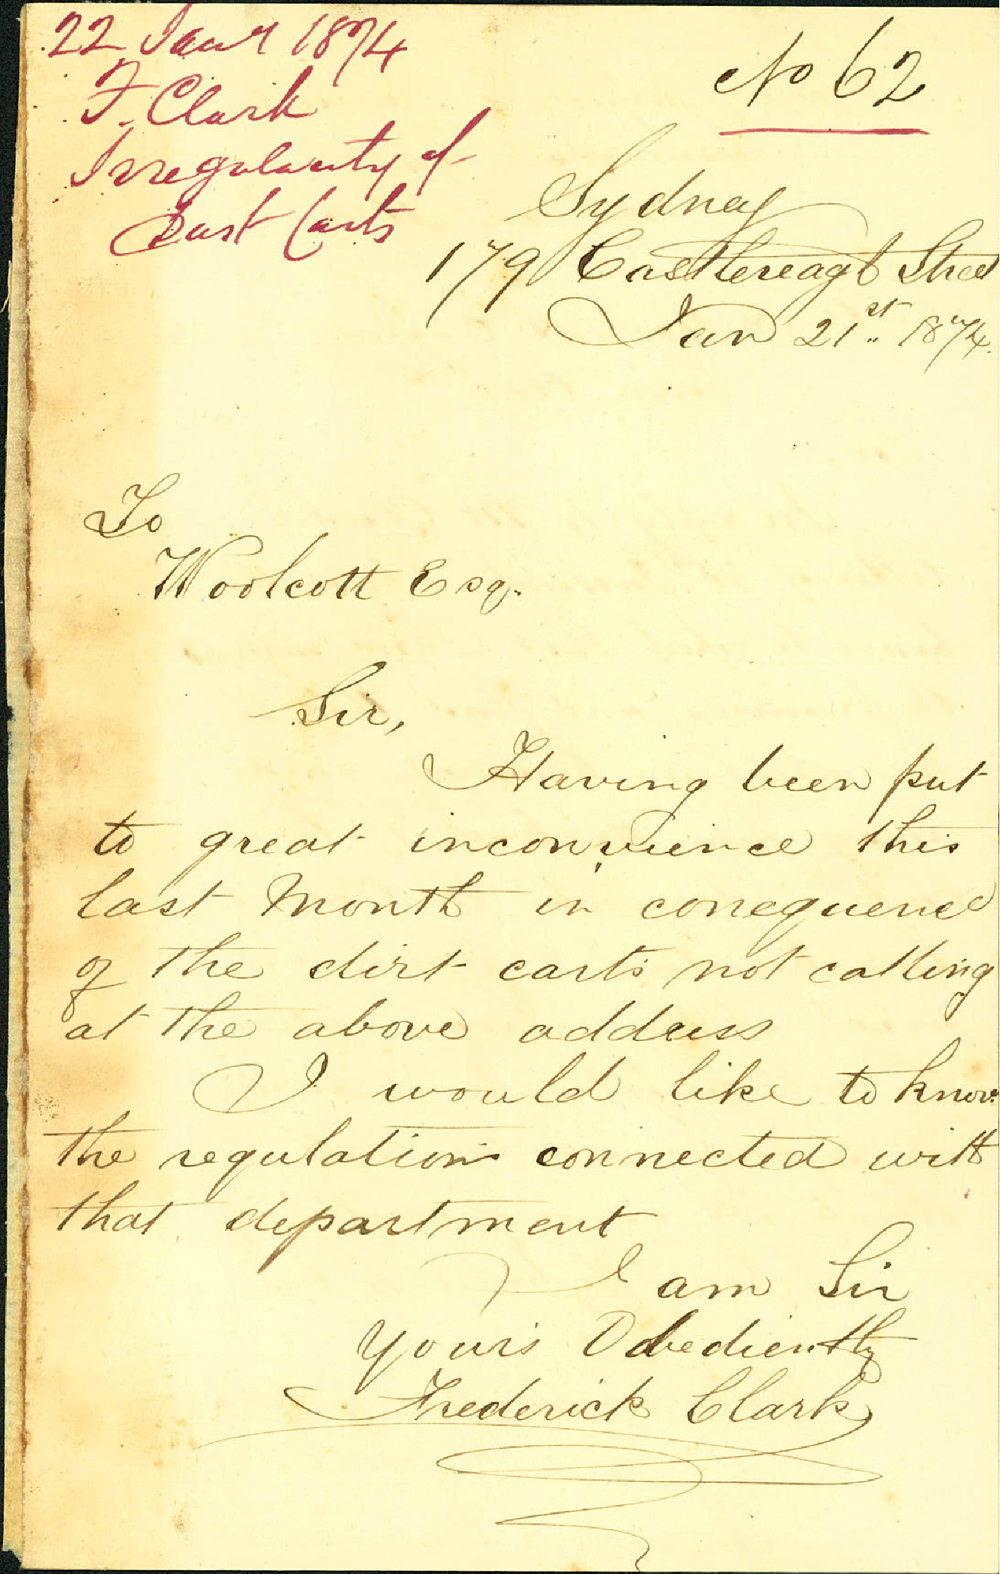 22 Jany 1874
F. Clark
Irregularity of
Dust Carts
No 62
Sydney
179 Castlereagh Street
Jan 21st. 1874.
To
Woolcott Esq.
Sir,
Having been put
to great inconvience this
last Month in conequence
of the dirt carts not calling
at the above address
I would like to know
the regulations connected with
that department
I am Sir
Yours Obediently
Frederick Clark